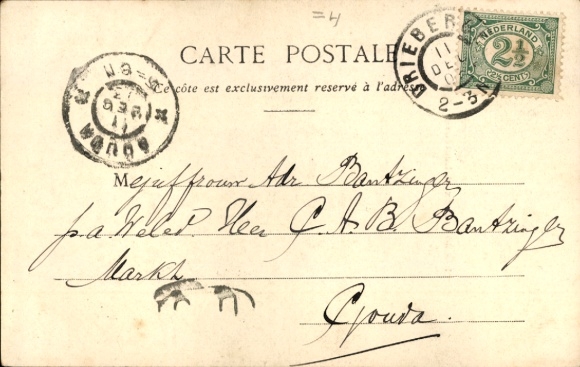 =4
CARTE POSTALE
Ce côté est exclusivement reservé à l'adresse
DRIEBERG
11
DEC
2-3N
NEDERLAND
2½
(2½ CENT)
GOUDA
11
DEC
5-6N
Mejuffrouw Adr. Bantzinger
p.a. Weled. Heer C. A. B. Bantzinger
Markt
Gouda.